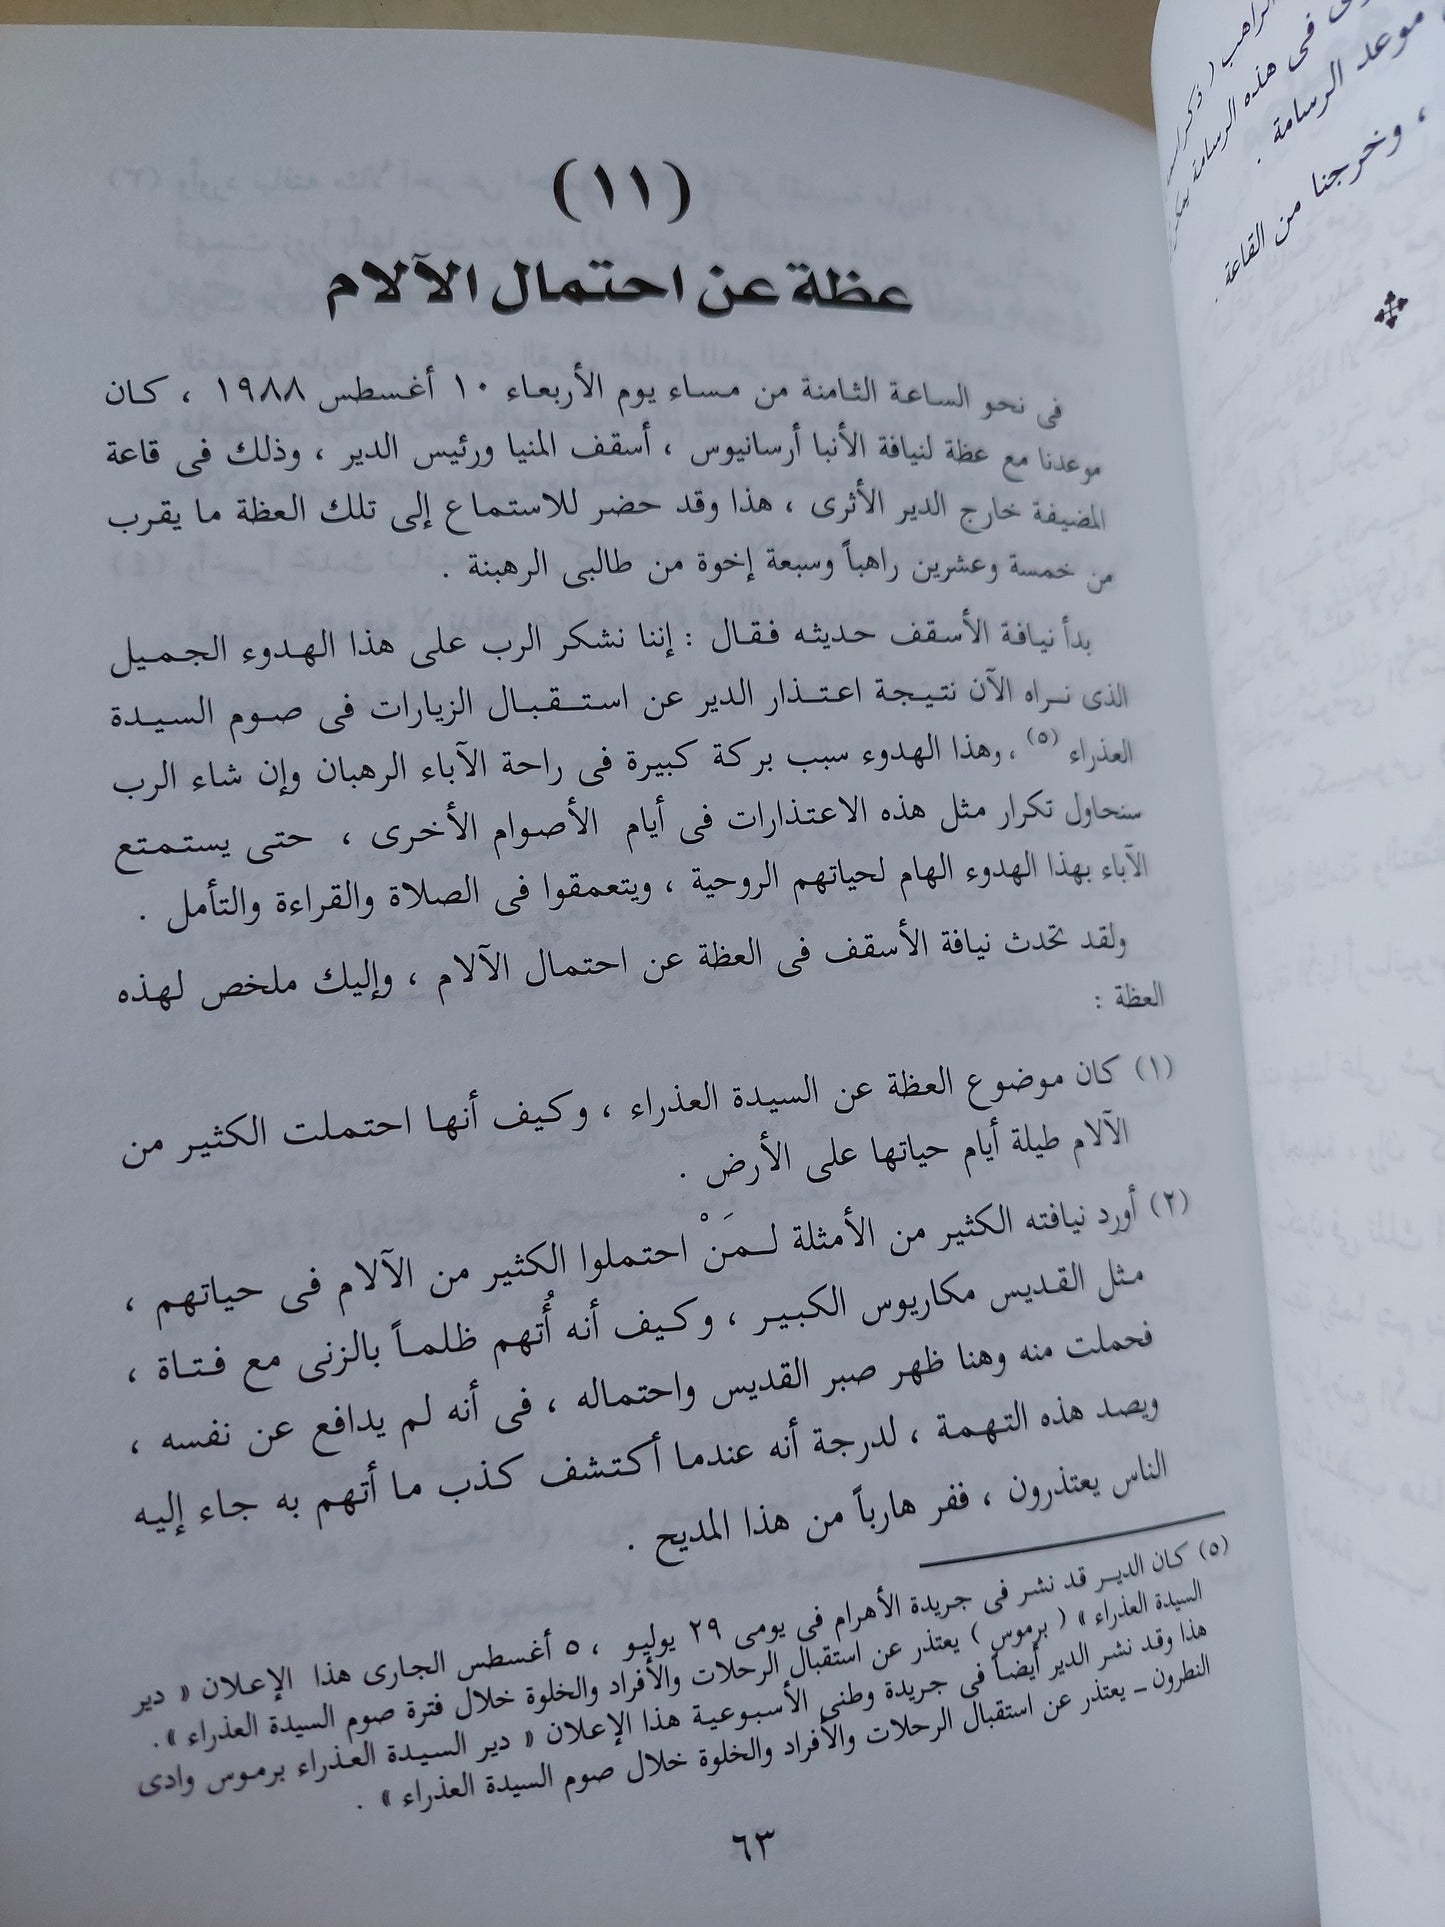 الراهب (
فى هذه الرسامة
موعد الرسامة .
، وخرجنا من القاعة .
(١١)
عظة عن احتمال الآلام
فى نحو الساعة الثامنة من مساء يوم الأربعاء ١٠ أغسطس ١٩٨٨ ، كان
موعدنا مع عظة لنيافة الأنبا أرسانيوس ، أسقف المنيا ورئيس الدير ، وذلك فى قاعة
المضيفة خارج الدير الأثرى ، هذا وقد حضر للاستماع إلى تلك العظة ما يقرب
من خمسة وعشرين راهباً وسبعة إخوة من طالبى الرهبنة .
بدأ نيافة الأسقف حديثه فقال : إننا نشكر الرب على هذا الهدوء الجميل
الذى نراه الآن نتيجة اعتذار الدير عن استقبال الزيارات فى صوم السيدة
العذراء (٥) ، وهذا الهدوء سبب بركة كبيرة فى راحة الآباء الرهبان وإن شاء الرب
سنحاول تكرار مثل هذه الاعتذارات فى أيام الأصوام الأخرى ، حتى يستمتع
الآباء بهذا الهدوء الهام لحياتهم الروحية ، ويتعمقوا فى الصلاة والقراءة والتأمل .
ولقد تحدث نيافة الأسقف فى العظة عن احتمال الآلام ، وإليك ملخص لهذه
العظة :
(١) كان موضوع العظة عن السيدة العذراء ، وكيف أنها احتملت الكثير من
الآلام طيلة أيام حياتها على الأرض .
(٢) أورد نيافته الكثير من الأمثلة لـمَنْ احتملوا الكثير من الآلام فى حياتهم ،
مثل القديس مكاريوس الكبير ، وكيف أنه أُتهم ظلماً بالزنى مع فتاة ،
فحملت منه وهنا ظهر صبر القديس واحتماله ، فى أنه لم يدافع عن نفسه ،
ويصد هذه التهمة ، لدرجة أنه عندما أكتشف كذب ما أتهم به جاء إليه
الناس يعتذرون ، ففر هارباً من هذا المديح .
(٥) كان الدير قد نشر فى جريدة الأهرام فى يومى ٢٩ يوليو ، ٥ أغسطس الجارى هذا الإعلان « دير
السيدة العذراء » ( برموس ) يعتذر عن استقبال الرحلات والأفراد والخلوة خلال فترة صوم السيدة العذراء » .
هذا وقد نشر الدير أيضاً فى جريدة وطنى الأسبوعية هذا الإعلان « دير السيدة العذراء برموس وادى
النطرون ــ يعتذر عن استقبال الرحلات والأفراد والخلوة خلال صوم السيدة العذراء » .
٦٣